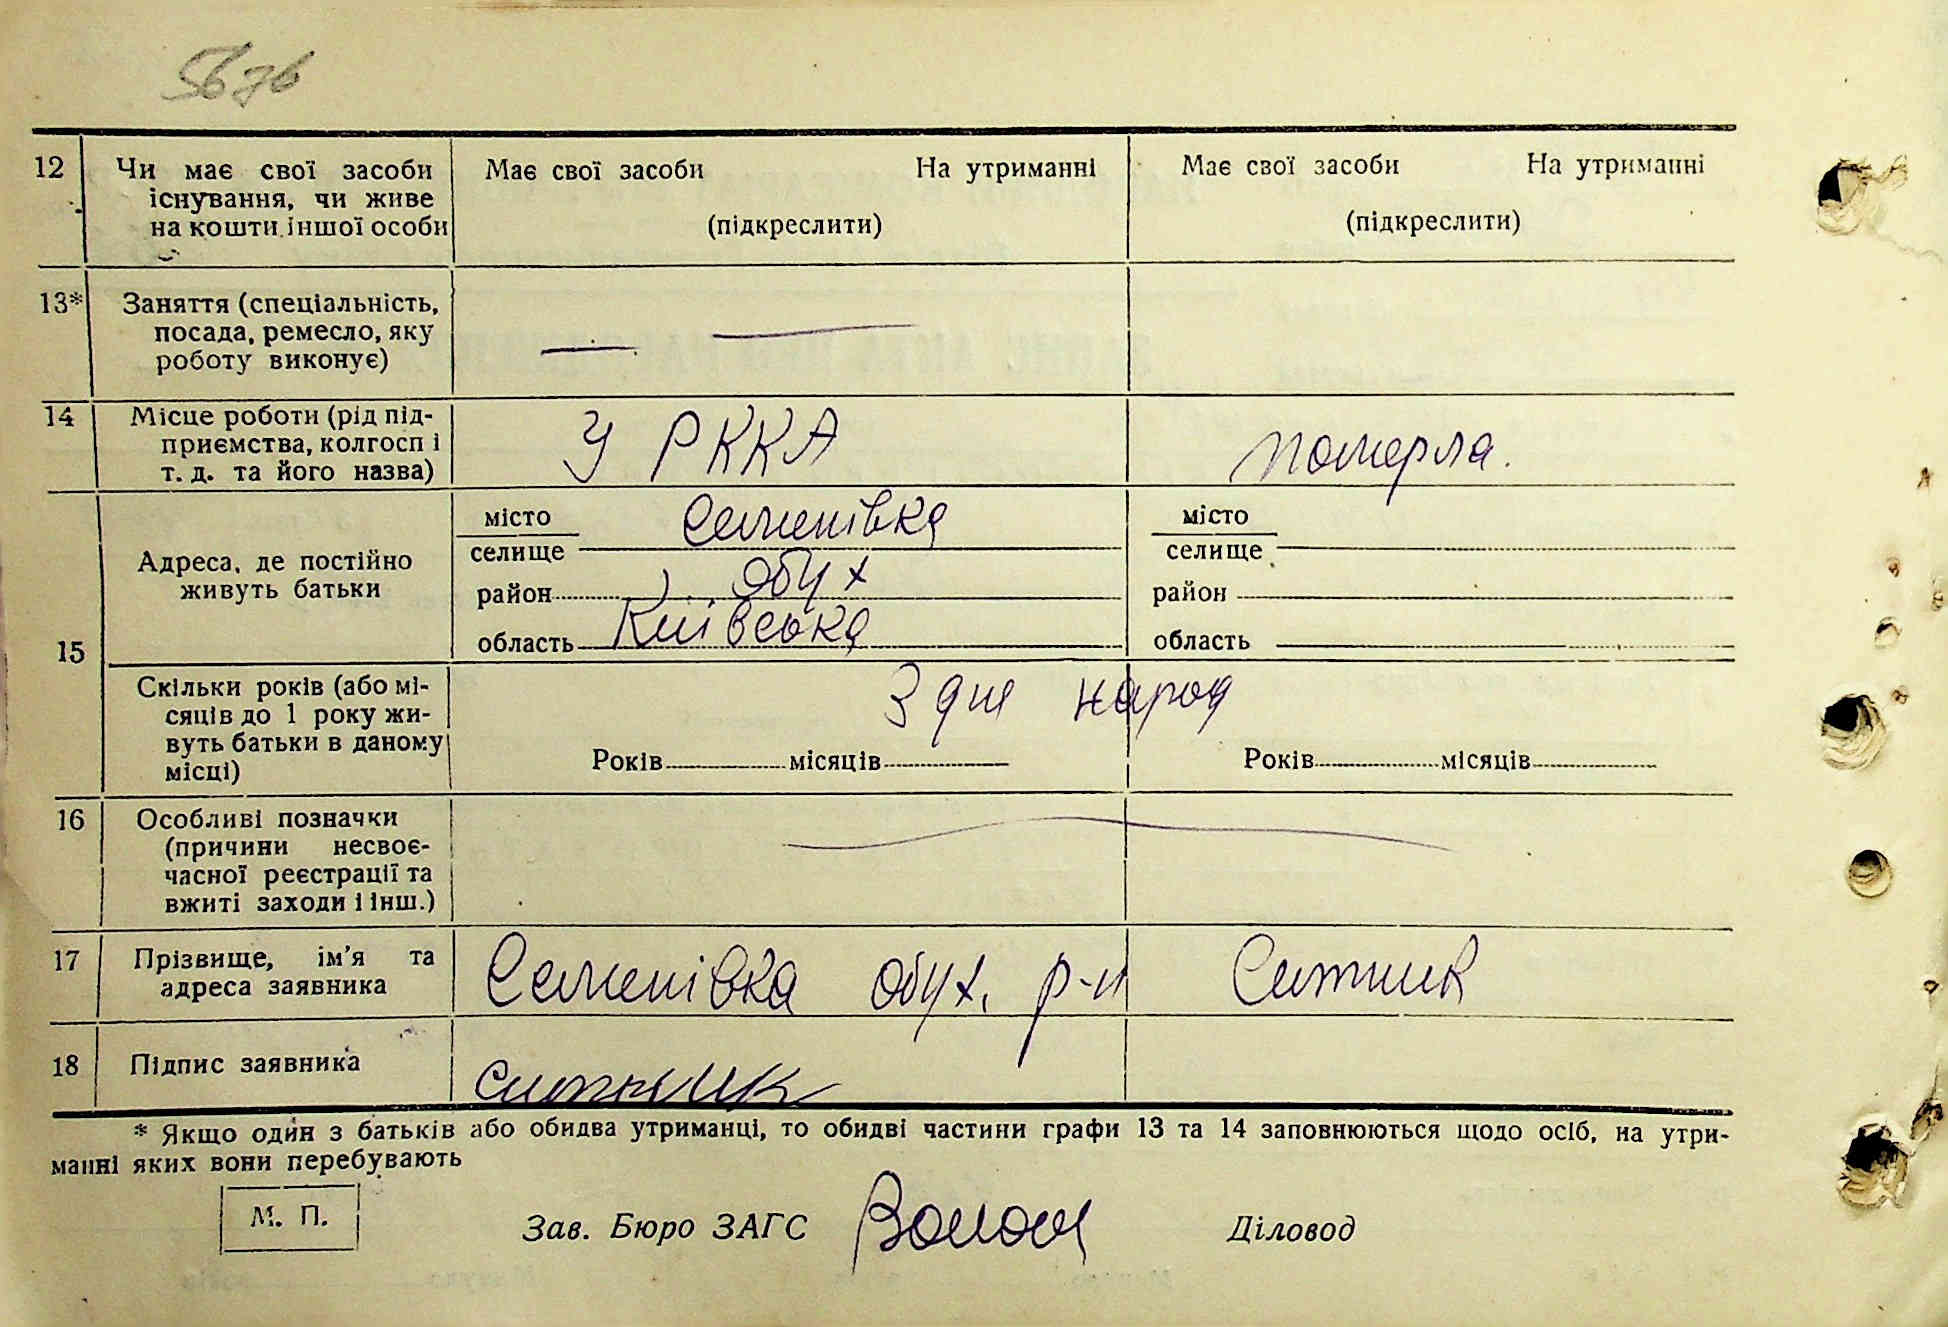 12 Чи має свої засоби Має свої засоби На утриманні Має свої засоби На утриманні
існування, чи живе
на кошти іншої особи (підкреслити) (підкреслити)
13* Заняття (спеціальність,
посада, ремесло, яку
роботу виконує)
14 Місце роботи (рід під-
приємства, колгосп і У РККА померла.
т. д. та його назва)
15
Адреса, де постійно
живуть батьки
місто Семенівка
селище
район Обух
область Київська
місто
селище
район
область
Скільки років (або мі-
сяців до 1 року жи-
вуть батьки в даному
місці)
З дня народ
Років місяців Років місяців
16 Особливі позначки
(причини несвоє-
часної реєстрації та
вжиті заходи і інш.)
17 Прізвище, ім'я та
адреса заявника
Семенівка Обух. р-н Ситник
18 Підпис заявника Ситник
* Якщо один з батьків або обидва утриманці, то обидві частини графи 13 та 14 заповнюються щодо осіб, на утри-
манні яких вони перебувають
М. П.
Зав. Бюро ЗАГС Діловод